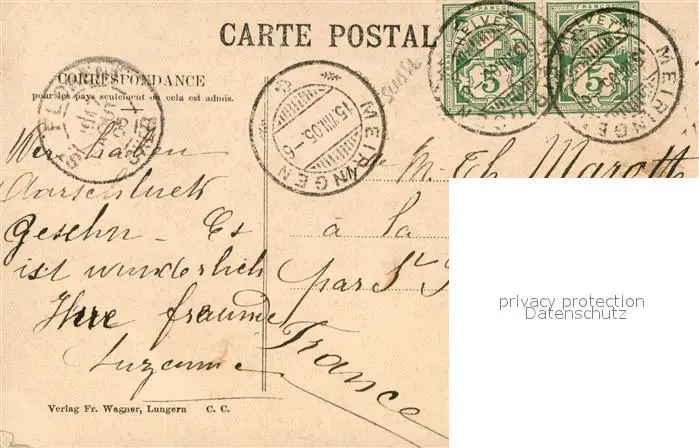 CARTE POSTALE
Suisse
CORRESPONDANCE
pour les pays seulement où cela est admis.
HELVETIA
FRANCO
5
FRANCO
5
MEIRINGEN
15.VIII.05.-6
MEIRINGEN
Wir haben
Aarschlucht
gesehn - Es
ist wunderlich
Ihre
Luzerne
M. Th. Marott
à la
par St
France
privacy protection
Datenschutz
Verlag Fr. Wagner, Lungern C. C.